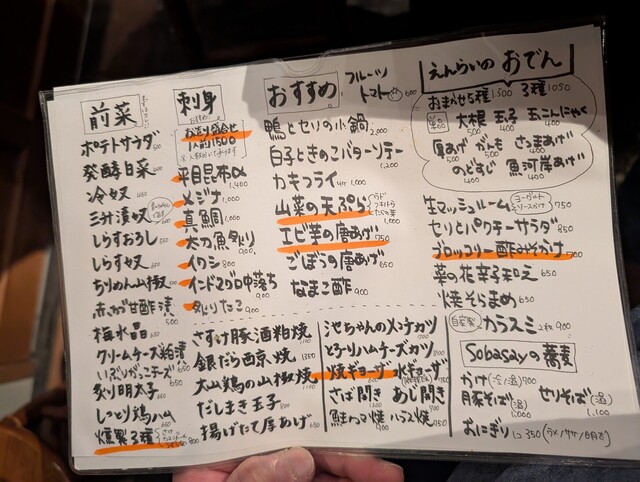 前菜
ポテトサラダ 500
発酵白菜
冷奴
三升漬奴
しらすおろし
しらす奴
ちりめん山椒奴
赤かぶ甘酢漬 500
梅水晶
クリームチーズ粕漬
いぶりがっこチーズ
炙り明太子
しっとり鶏ハム
燻製3種
刺身
お造り盛合せ
1人前1500
平目昆布〆 1,400
メジナ 1,000
真鯛 1,000
太刀魚炙り 900
イワシ 800
インドマグロ中落ち 900
炙りたこ 900
さすけ豚酒粕焼
銀だら西京焼 1350
大山鶏の山椒焼
だしまき玉子 800
揚げたて厚あげ 650
おすすめ
フルーツトマト 600
鴨とセリの小鍋 2,000
白子ときのこバターソテー 1,200
カキフライ 1,000
山菜の天ぷら 1,000
エビ芋の唐あげ 750
ごぼうの唐あげ 650
なまこ酢 900
池ちゃんのメンチカツ
とろーりハムチーズカツ
焼ギョーザ 水ギョーザ
さば開き あじ開き
鮭ハラス焼 950
えんらいのおでん
おまかせ5種 1,500 3種 1050
大根 玉子 玉こんにゃく
厚あげ がんも さつまあげ
のどすじ 魚河岸あげ
生マッシュルーム 750
セリとパクチーサラダ 850
ブロッコリー酢みそがけ 700
菜の花辛子和え 650
焼そらまめ 650
自家製 カラスミ 2枚 900
Sobasayの蕎麦
かけ(冷/温) 900
豚そば(温) 1,000 せりそば(温) 1,100
おにぎり 1コ 350